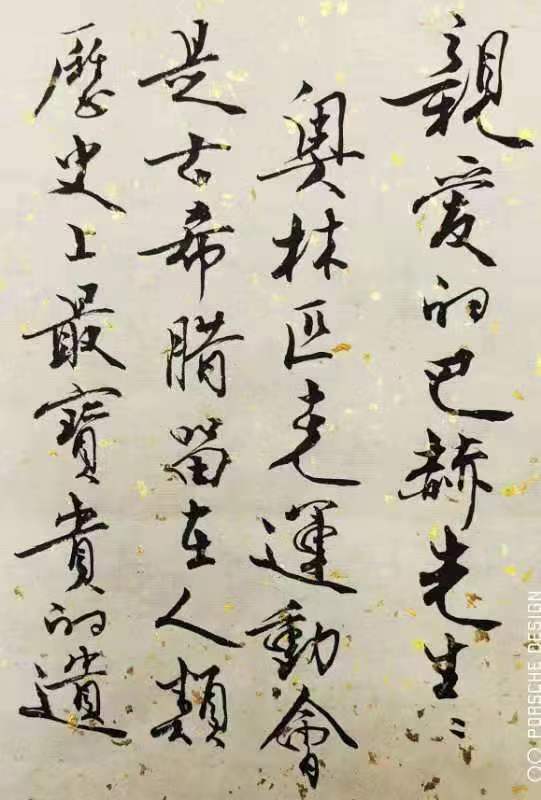 親愛的巴赫先生：
奧林匹克運動會
是古希腊留在人類
歷史上最寶貴的遺
PORSCHE DESIGN